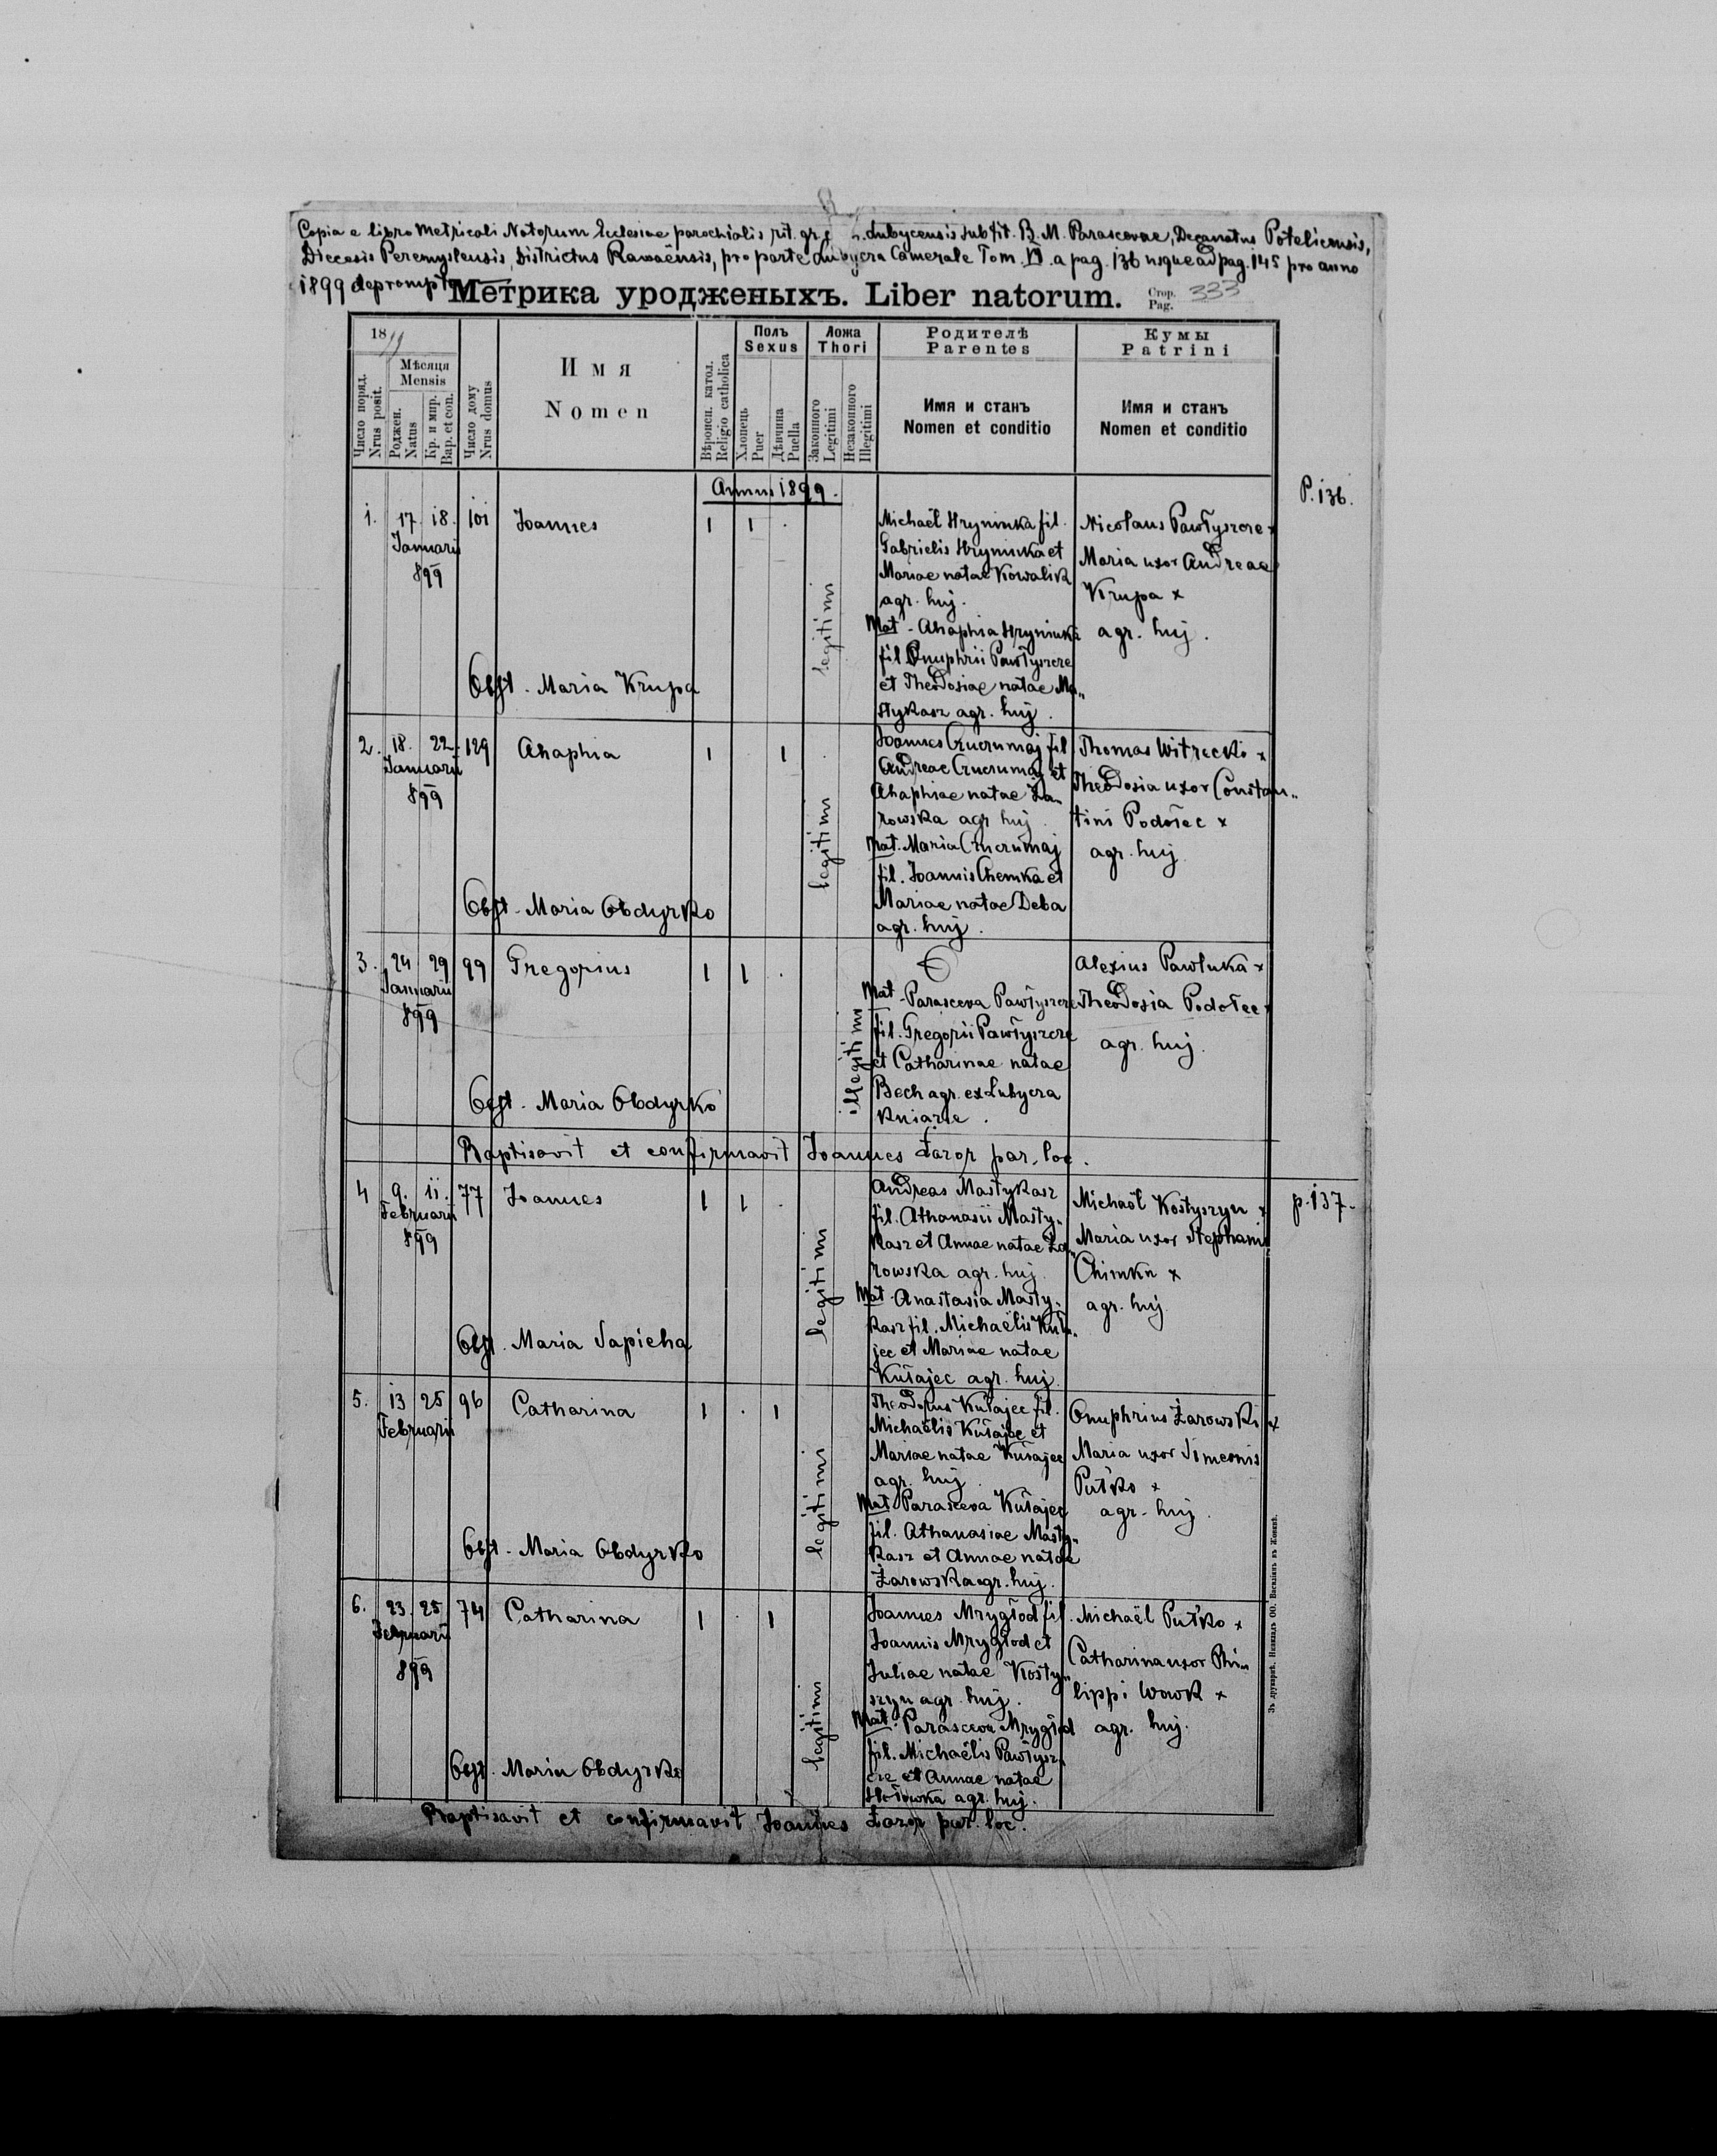 Copia e libro metricali Natorum Ecclesiae parochialis rit. gr. Lubycensis sub tit. B. M. Parascevae, Decanatus Potelicensis,
Diecesis Peremysliensis, Districtus Rawaënsis, pro parte Lubycza Camerale Tom. VI. a pag. 136 usque ad pag. 145 pro anno
1899 deprompta
Метрика уродженыхъ. Liber natorum.
Стор. Pag. 333
1899
Число поряд. Nrus posit.
Мѣсяця Mensis
Роджен. Natus
Кр. и мир. Bap. et con.
Число дому Nrus domus
Имя
Nomen
Вѣроисп. катол. Religio catholica
Полъ Sexus
Хлопець Puer
Дѣвчина Puella
Ложа Thori
Законного Legitimi
Незаконного Illegitimi
Родителѣ Parentes
Имя и станъ
Nomen et conditio
Кумы Patrini
Имя и станъ
Nomen et conditio
Annus 1899.
P. 136.
1. 17. 18. 101 Joannes 1 1 .
Januarii
899
legitimi
Michaël Hryniuka fil.
Gabrielis Hryniuka et
Mariae natae Kowalik
agr. huj.
Mat. Ahaphia Hryniuka
fil. Onuphrii Pawłyszcze
et Theodosiae natae Ma„
stykasz agr. huj.
Nicolaus Pawłyszcze x
Maria uxor Andreae
Krupa x
agr. huj.
Obst. Maria Krupa
2. 18. 22. 129 Ahaphia 1 . 1 .
Januarii
899
legitimi
Joannes fil
Andreae et
Ahaphiae natae Ża„
rowska agr. huj.
Mat. Maria
fil. Joannis Chemka et
Mariae natae Deba
agr. huj.
Thomas Witrecko x
Theodosia uxor Constan„
tini Podołec x
agr. huj.
Obst. Maria Obdyrko
3. 24 29 99 Gregorius 1 1 .
Januarii
899
illegitimi
Mat. Parasceva Pawłyszcze
fil. Gregorii Pawłyszcze
et Catharinae natae
Bech agr. ex Lubycza
Kniazie.
Alexius Pawluka x
Theodosia Podołec x
agr. huj.
Obst. Maria Obdyrko
Baptisavit et confirmavit Joannes Łazor par. loc.
p. 137.
4 9. 11. 77 Joannes 1 1 .
Februarii
899
legitimi
Andreas Mastykasz
fil. Athanasii Masty„
kasz et Annae natae Ża„
rowska agr. huj.
Mat. Anastasia Masty„
kasz fil. Michaëlis Kuła„
jec et Mariae natae
Kułajec agr. huj.
Michaël Kostyszyn x
Maria uxor Stephani
Chimka x
agr. huj.
Obst. Maria Sapieha
5. 13 25 96 Catharina 1 . 1
Februarii
legitimi
Theodorus Kułajec fil.
Michaëlis Kułajec et
Mariae natae Kułajec
agr. huj.
Mat. Parasceva Kułajec
fil. Athanasiae Masty„
kasz et Annae natae
Żarowska agr. huj.
Onuphrius Żarowski x
Maria uxor Simeonis
Putko x
agr. huj.
Obst. Maria Obdyrko
6. 23. 25 74 Catharina 1 . 1
Februarii
899
legitimi
Joannes Mrygłod fil.
Joannis Mrygłod et
Juliae natae Kosty„
szyn agr. huj.
Mat. Parasceva Mrygłod
fil. Michaëlis Pawłysz„
cze et Annae natae
agr. huj.
Michaël Putko x
Catharina uxor Phi„
lippi Wowk x
agr. huj.
Obst. Maria Obdyrko
Baptisavit et confirmavit Joannes Łazor par. loc.
Зъ друкарнѣ. Накладъ ОО. Василіянъ въ Жовквѣ.